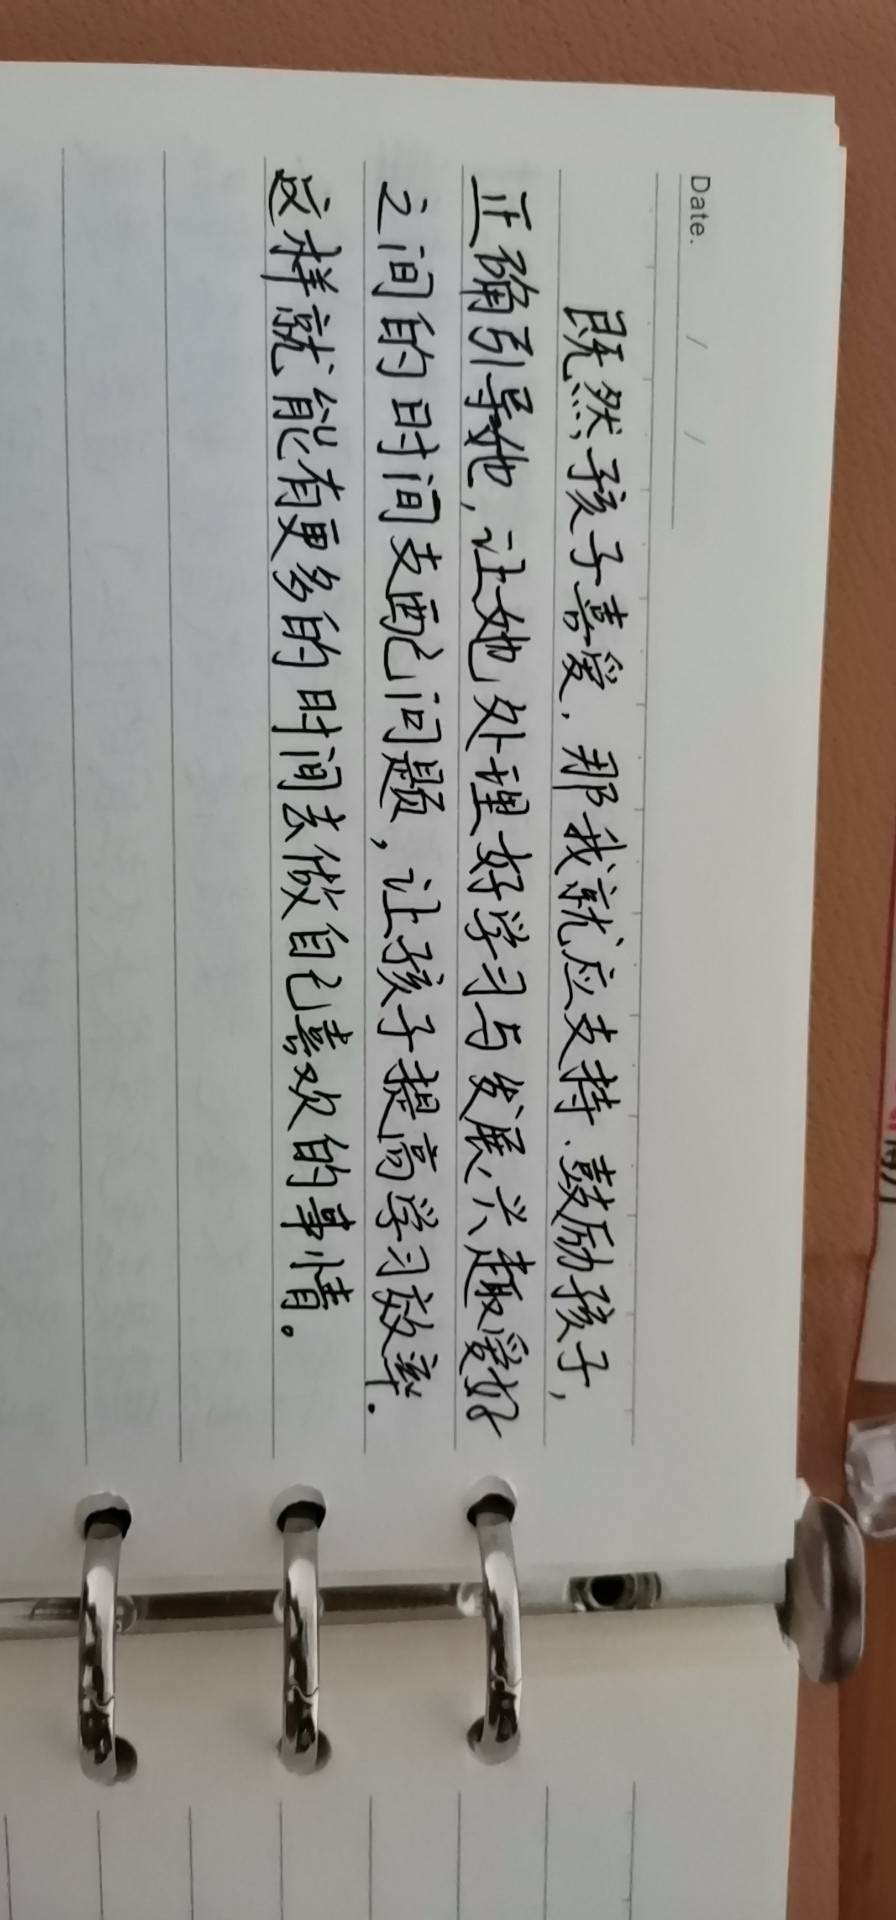 Date. / /
既然孩子喜爱，那我就应支持、鼓励孩子，
正确引导她，让她处理好学习与发展兴趣爱好
之间的时间支配问题，让孩子提高学习效率.
这样就能有更多的时间去做自己喜欢的事情。